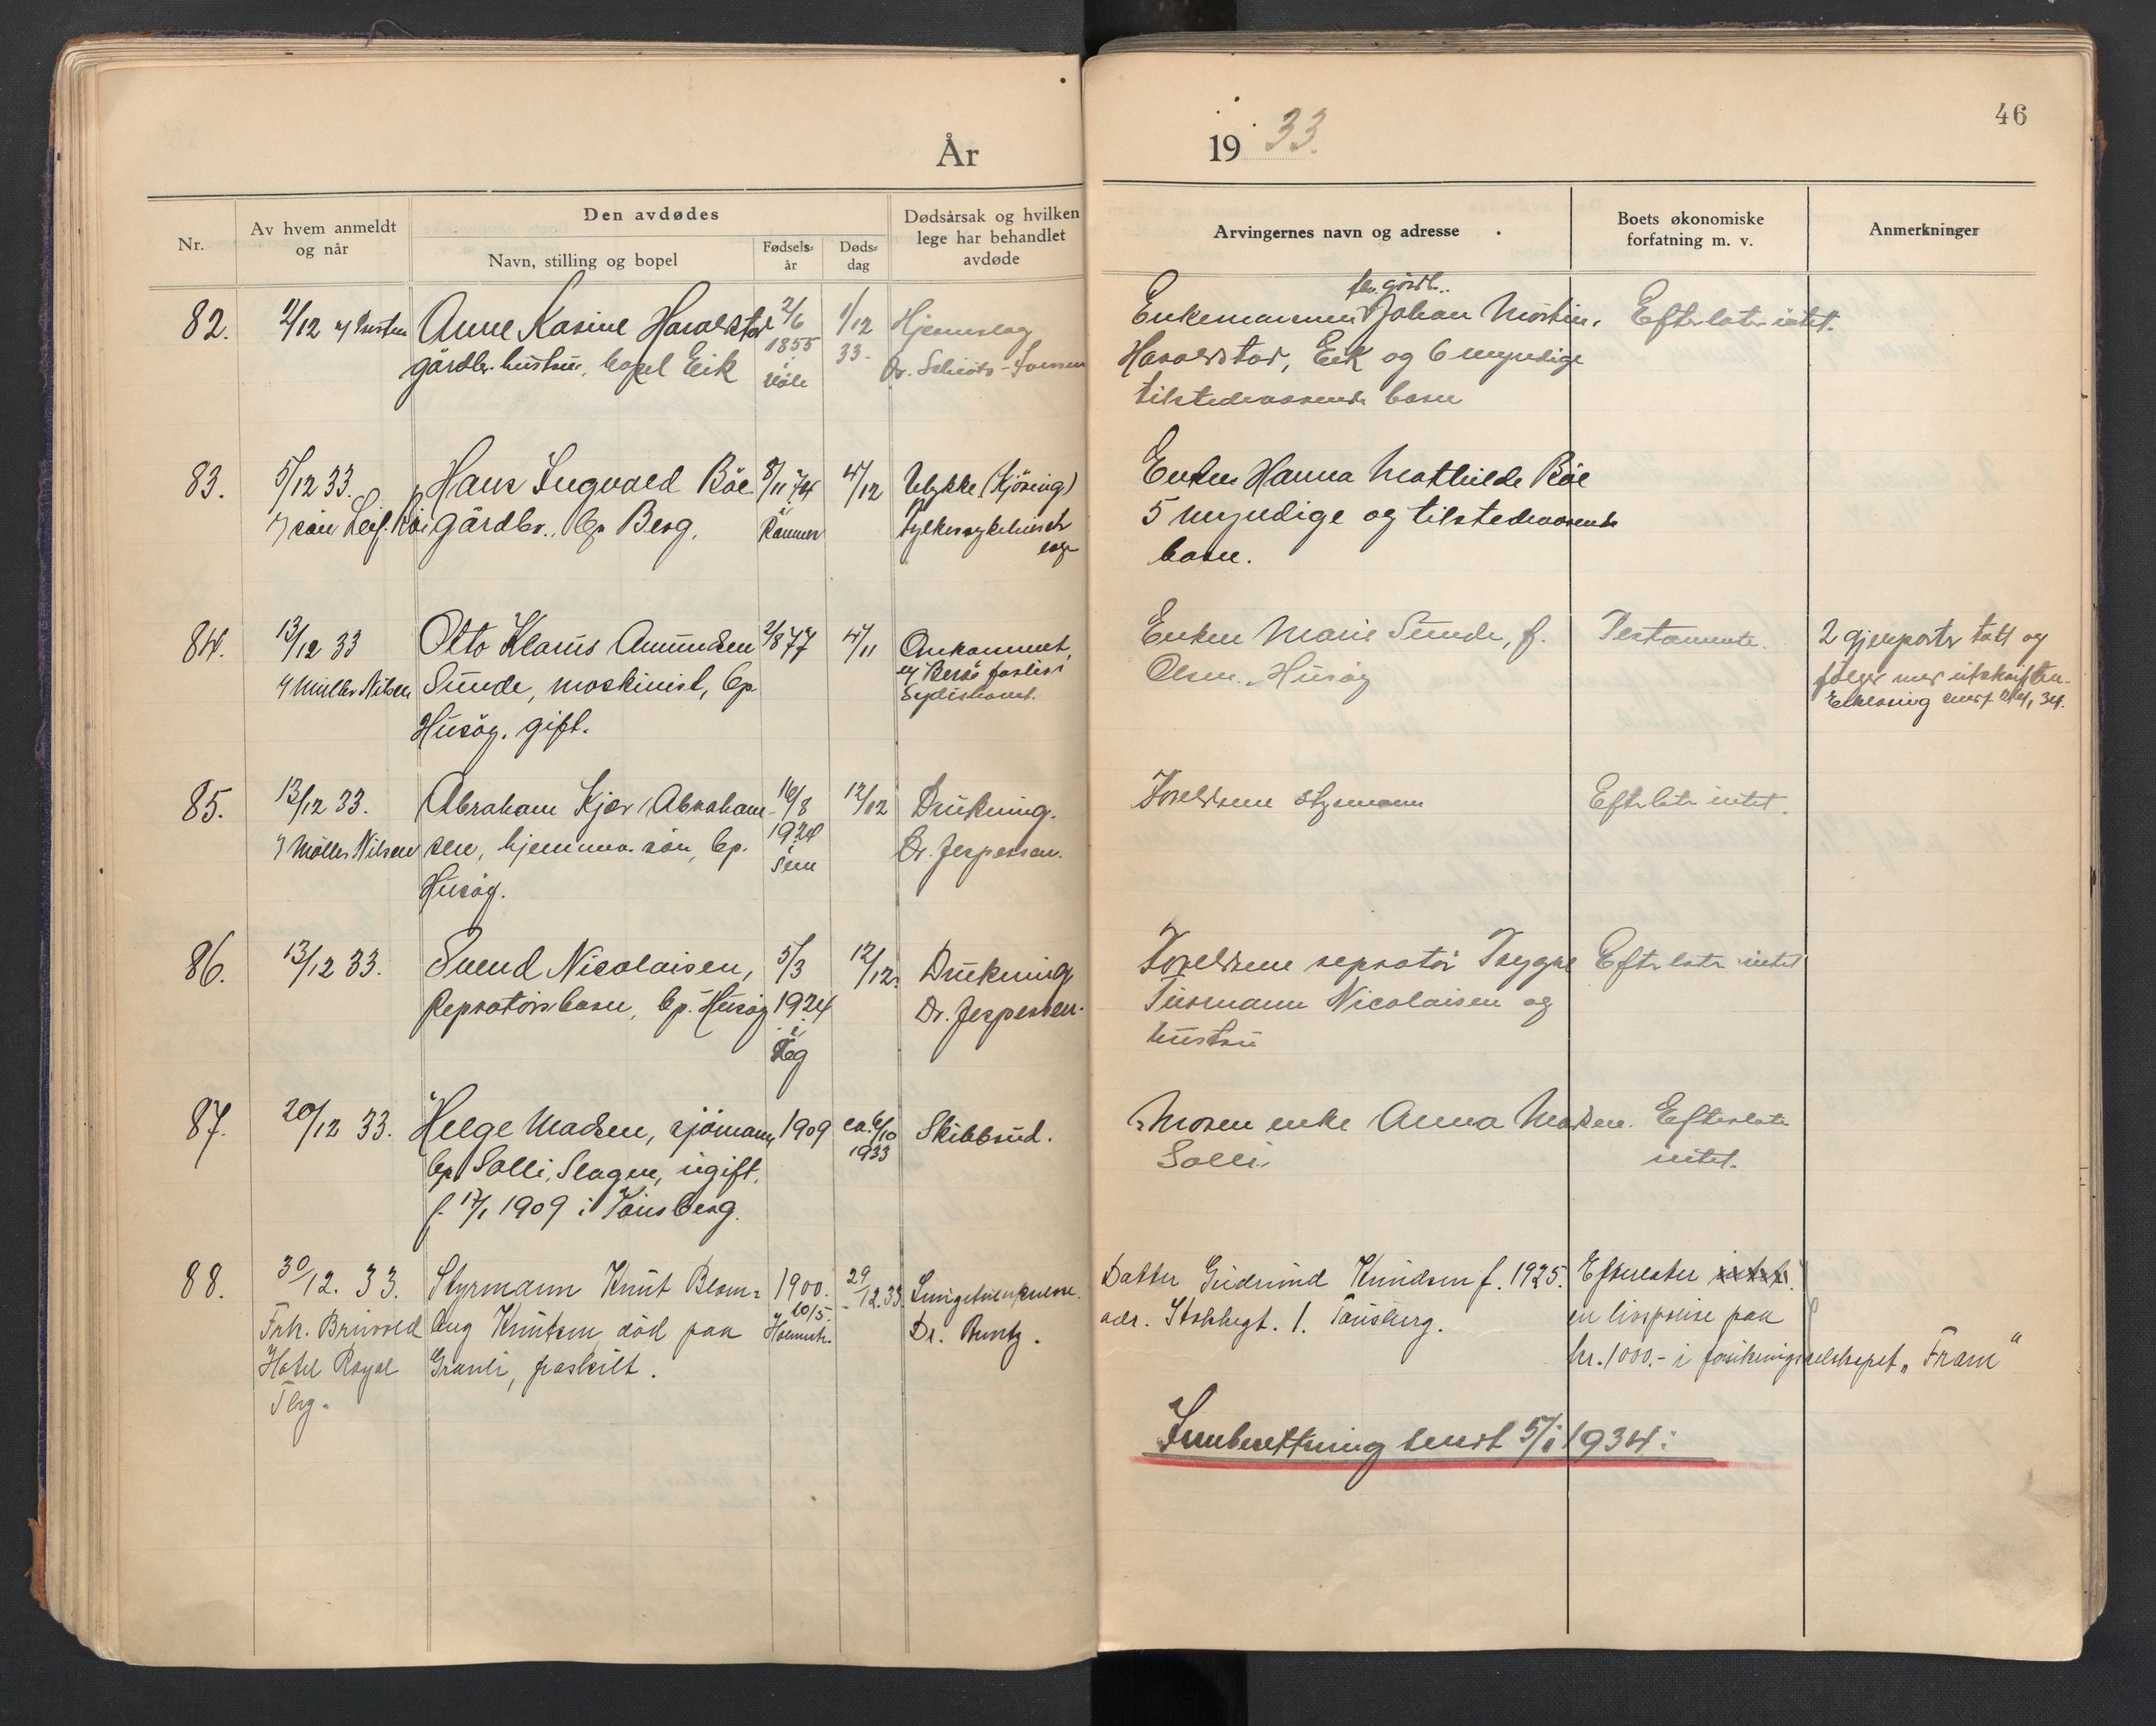 År
19 33.
46
Nr.
Av hvem anmeldt
og når
Den avdødes
Navn, stilling og bopel
Fødsels=
år
Døds=
dag
Dødsårsak og hvilken
lege har behandlet
avdøde
Arvingernes navn og adresse
Boets økonomiske
forfatning m. v.
Anmerkninger
82.
Anne Karine Haraldstad
gårdbr. hustru, bopel Eik
2/6
1855
1/12
33.
Hjerneslag
Enkemannen fhv. gårdbr. Johan Martin
Haraldstad, Eik og 6 myndige
tilstedeværende barn
Efterlater intet.
83.
5/12 33.
v/ sön Leif Böe
Hans Ingvald Böe
gårdbr., bp Berg.
8/11 74
i
Ramnes
4/12
Ulykke (Kjöring)
Fylkessykehusets
lege
Enken Hanna Mathilde Böe
5 myndige og tilstedeværende
barn.
84.
13/12 33
v/ Müller Nilsen
Otto Klaus Amundsen
Sunde, maskinist, bp
Husöy. gift.
2/8 77
4/11
Omkommet,
forlist
Sydishavet.
Enken Marie Sunde, f.
Olsen, Husöy
Testamente.
2 gjenparter tatt og
fölger med utskriften.
85.
13/12 33.
v/ Möller Nilsen
Abraham Kjær Abraham-
sen, hjemmev. sön, bp.
Husöy.
16/8
1924
i
Sem
12/12
Drukning.
Dr. Jespersen.
Foreldrene styrmann
Efterlater intet.
86.
13/12 33.
Svend Nicolaisen,
Reparatörs barn, bp. Husöy
5/3
1924
i
12/12
Drukning
Dr. Jespersen.
Foreldrene reparatör Trygve
Nicolaisen og
hustru
Efterlater intet
87.
20/12 33.
Helge Madsen, sjömann,
bp Solli, Slagen, ugift.
f. 17/1 1909 i Tönsberg.
1909
ca. 6/10
1933
Skibbrud.
Moren enke Anna Madsen.
Solli.
Efterlater
intet.
88.
30/12. 33.
Frk. Brusved
Hotel Royal
Tbrg.
Styrmann Knut Blom=
Knutsen död paa
Granli, fraskilt.
1900.
10/5.
29/12.33.
Lungetuberkulose.
Dr. Buntz.
Datter Gudrund Knudsen f. 1925.
adr. Stokkegt. 1. Tönsberg.
Efterlater intet.
en livspolise paa
kr. 1000.- i forsikringsselskapet „Fram“
Innberetning sendt 5/1 1934.